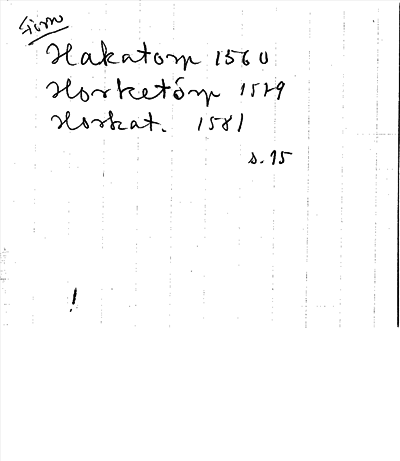 Finn
Hakatorp 1560
Horketórp 1579
Horkat. 1581
s. 15
!